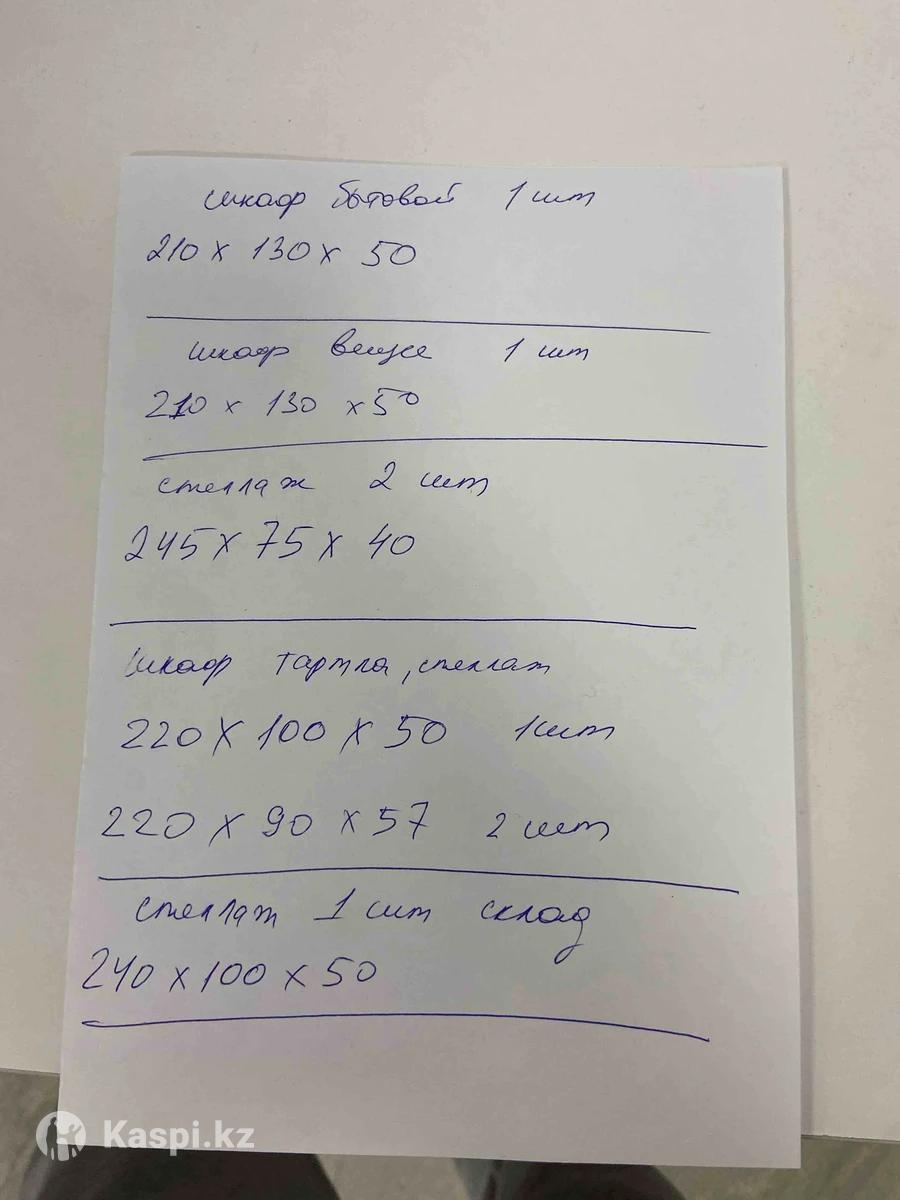 шкаф бытовой 1 шт
210 х 130 х 50
шкаф вещев 1 шт
210 х 130 х 50
стеллаж 2 шт
245 х 75 х 40
шкаф тартпа, стеллаж
220 х 100 х 50 1 шт
220 х 90 х 57 2 шт
стеллаж 1 шт склад
240 х 100 х 50
Kaspi.kz